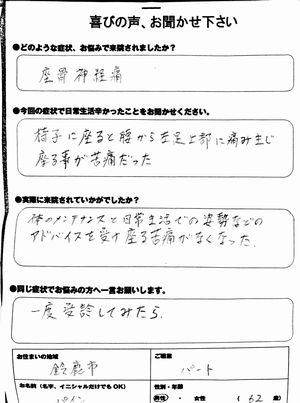 喜びの声、お聞かせ下さい
●どのような症状、お悩みで来院されましたか？
座骨神経痛
●今回の症状で日常生活辛かったことをお聞かせください。
椅子に座ると腰から左足上部に痛み生じ
座る事が苦痛だった
●実際に来院されていかがでしたか？
体のメンテナンスと日常生活での姿勢などの
アドバイスを受け座る苦痛がなくなった。
●同じ症状でお悩みの方へ一言お願いします。
一度受診してみたら。
お住まいの地域
ご職業
鈴鹿市
パート
お名前（名字、イニシャルだけでもOK）
性別・年齢
パイン
男性・女性（62歳）